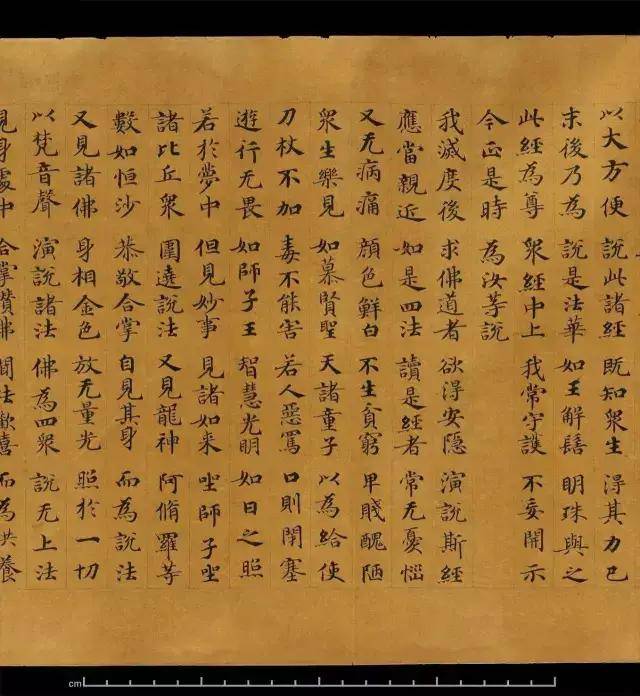 以大方便 說此諸經 既知衆生 得其力已
末後乃為 說是法華 如王解髻 明珠與之
此經為尊 衆經中上 我常守護 不妄開示
今正是時 為汝等說
我滅度後 求佛道者 欲得安隱 演說斯經
應當親近 如是四法 讀是經者 常无憂惱
又无病痛 顏色鮮白 不生貧窮 卑賤醜陋
衆生樂見 如慕賢聖 天諸童子 以為給使
刀杖不加 毒不能害 若人惡罵 口則閉塞
遊行无畏 如師子王 智慧光明 如日之照
若於夢中 但見妙事 見諸如来 坐師子坐
諸比丘衆 圍遶說法 又見龍神 阿脩羅等
數如恒沙 恭敬合掌 自見其身 而為說法
又見諸佛 身相金色 放无量光 照於一切
以梵音聲 演說諸法 佛為四衆 說无上法
見身處中 合掌讃佛 聞法歡喜 而為供養
cm